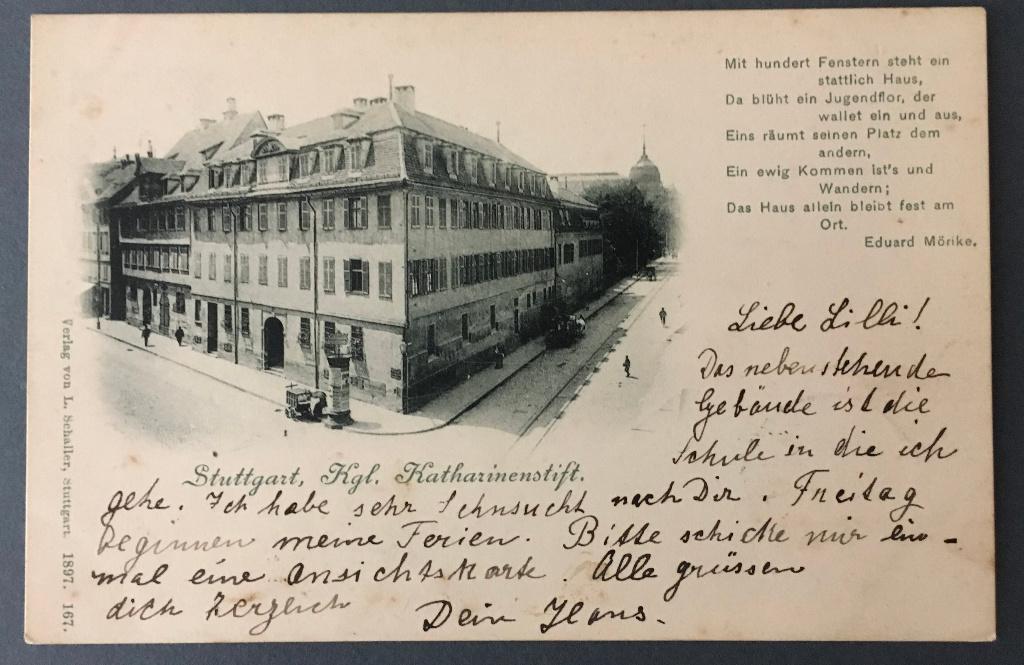 Mit hundert Fenstern steht ein
stattlich Haus,
Da blüht ein Jugendflor, der
wallet ein und aus,
Eins räumt seinen Platz dem
andern,
Ein ewig Kommen ist's und
Wandern;
Das Haus allein bleibt fest am
Ort.
Eduard Mörike.
Liebe Lilli!
Das nebenstehende
Gebäude ist die
Schule in die ich
Stuttgart, Kgl. Katharinenstift.
gehe. Ich habe sehr Sehnsucht nach Dir. Freitag
beginnen meine Ferien. Bitte schicke mir ein-
mal eine Ansichtskarte. Alle grüssen
dich herzlich Dein Hans.
Verlag von L. Schaller, Stuttgart. 1897. 167.